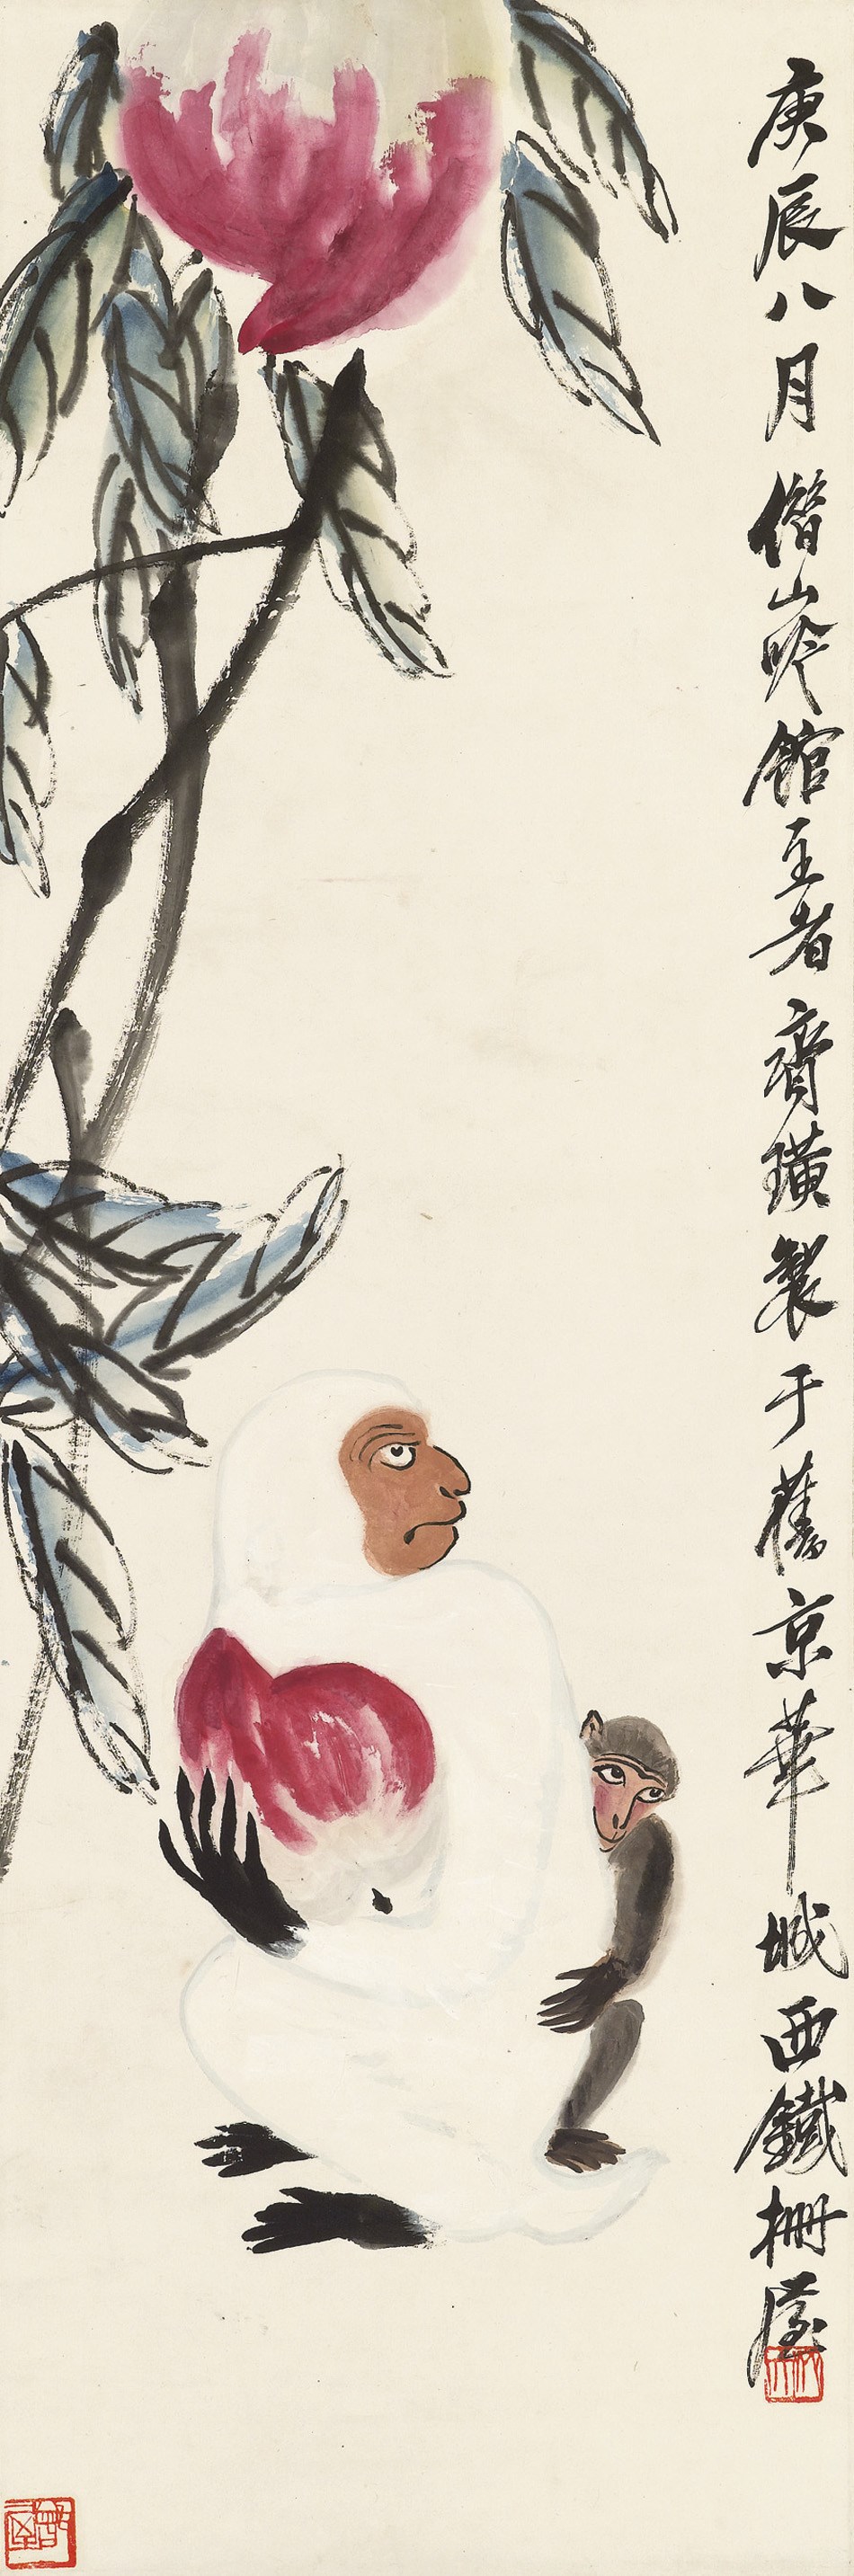 庚辰八月借山吟館主者齊璜製于舊京華城西鐵柵屋